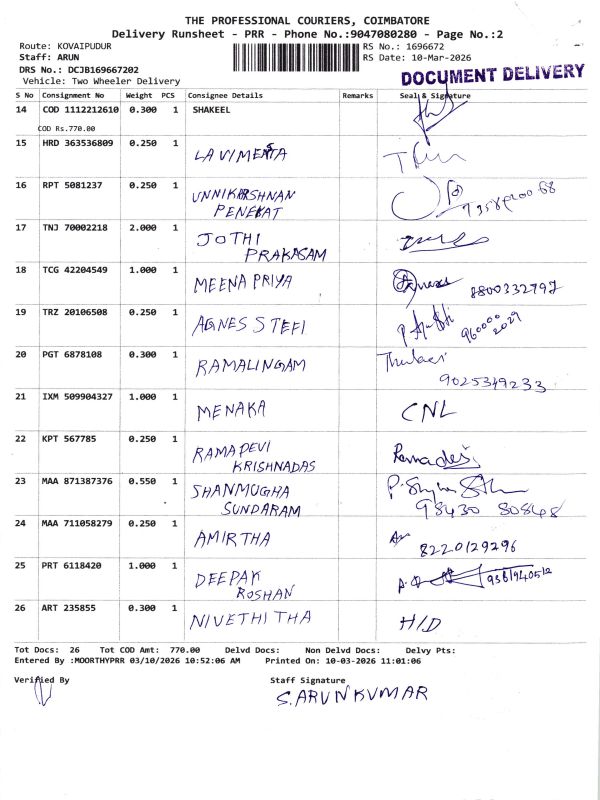 THE PROFESSIONAL COURIERS, COIMBATORE
Delivery Runsheet - PRR - Phone No.:9047080280 - Page No.:2
Route: KOVAIPUDUR RS No.: 1696672
Staff: ARUN RS Date: 10-Mar-2026
DRS No.: DCJB169667202
Vehicle: Two Wheeler Delivery
DOCUMENT DELIVERY
S No Consignment No Weight PCS Consignee Details Remarks Seal & Signature
14 COD 1112212610 0.300 1 SHAKEEL
COD Rs.770.00
15 HRD 363536809 0.250 1
LAVIMENSTA
16 RPT 5081237 0.250 1
UNNIKRSHNAN
PENEKAT
17 TNJ 70002218 2.000 1
JOTHI
PRAKASAM
18 TCG 42204549 1.000 1
MEENA PRIYA 8800332797
19 TRZ 20106508 0.250 1
AGNES STEFI 960000 2029
20 PGT 6878108 0.300 1
RAMALINGAM
9025349233
21 IXM 509904327 1.000 1
MENAKA CNL
22 KPT 567785 0.250 1
RAMADEVI Ramadevi
KRISHNADAS
23 MAA 871387376 0.550 1
SHANMUGHA
SUNDARAM 98430 80848
24 MAA 711058279 0.250 1
AMIRTHA 8220129296
25 PRT 6118420 1.000 1
DEEPAK 9361940512
ROSHAN
26 ART 235855 0.300 1
NIVETHITHA H/D
Tot Docs: 26 Tot COD Amt: 770.00 Delvd Docs: Non Delvd Docs: Delvy Pts:
Entered By :MOORTHYPRR 03/10/2026 10:52:06 AM Printed On: 10-03-2026 11:01:06
Verified By Staff Signature
S.ARUNKUMAR